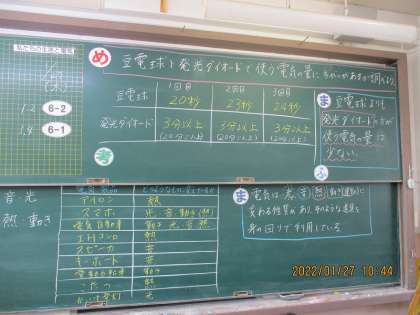 私たちの生活と電気
1.2 6-2
1.4 6-1
め 豆電球と発光ダイオードで使う電気の量にちがいがあるか調べよう。
1回目 2回目 3回目
豆電球 20秒 23秒 24秒
発光ダイオード 3分以上 3分以上 3分以上
(20分以上) (20分以上) (20分以上)
考
ま 豆電球よりも
発光ダイオードの方が
使う電気の量は
少ない。
ふ
音光
熱動き
アイロン 熱
スマホ 光 音 動き(熱)
電気自動車 動き 光 音 熱
スピーカ 音
キーボード 音
電動自転車 動き
こたつ 熱
光
ま 電気は光、音、熱、動き(運動)に
変わる性質があり、そのような道具を
身の回りで利用している
2022/01/27 10:44